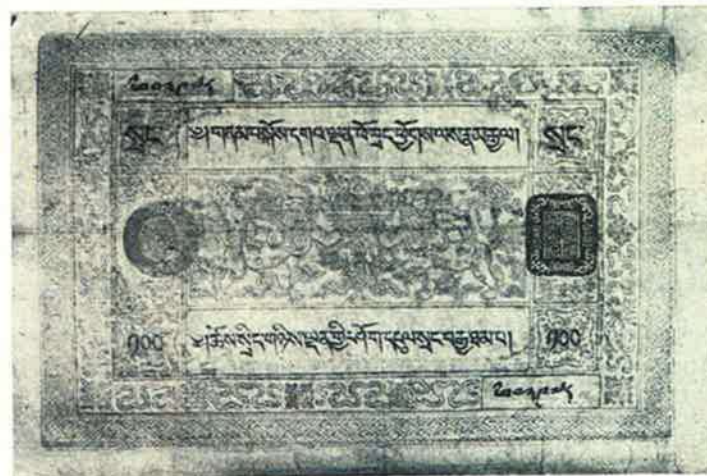 སྲང་ ༄། །གནམ་བསྐོས་དགའ་ལྡན་ཕོ་བྲང་ཕྱོགས་ལས་རྣམ་རྒྱལ། སྲང་
༡༠༠ ༄། །ཆོས་སྲིད་གཉིས་ལྡན་གྱི་ཤོག་དངུལ་སྲང་བརྒྱ་ཐམ་པ། ༡༠༠